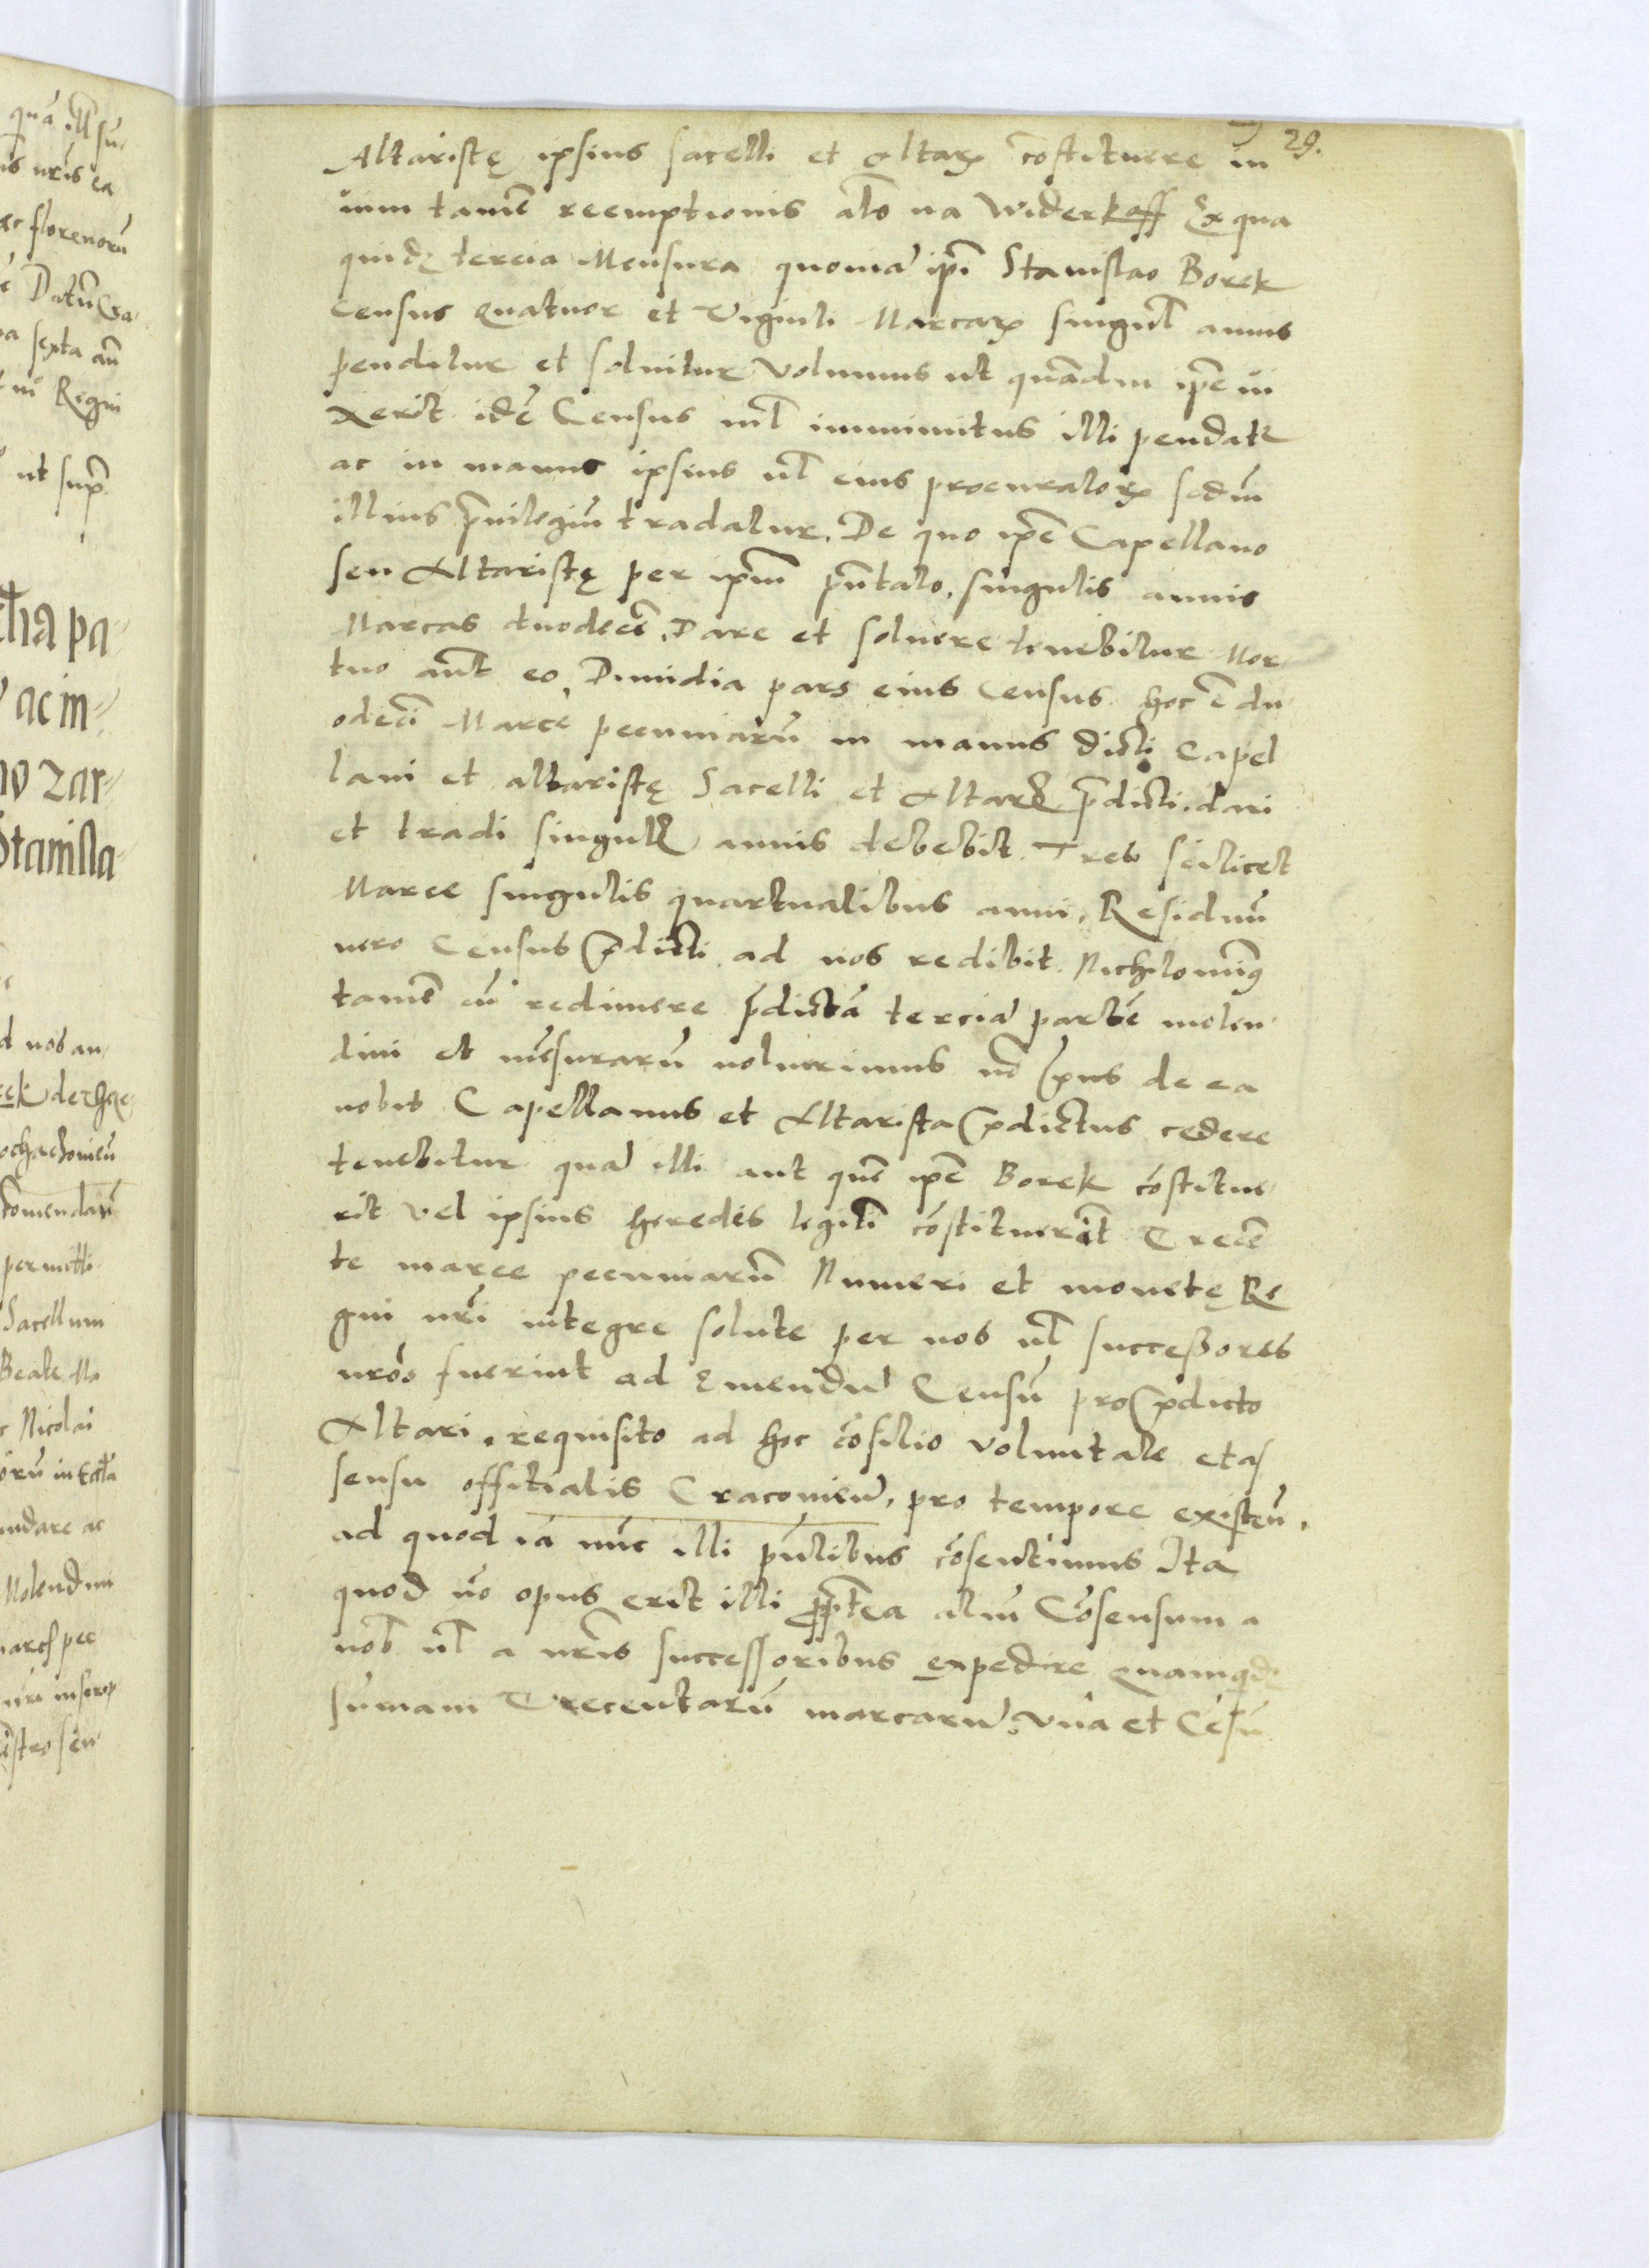 quā ill su-
is nr̄is ea
ac florenorū
Datū Cra-
a sexta an̄
ni Regni
ut sup̄
cl̄ia pa-
ac in-
no zar-
Stanisla-
d nos an-
ek de rhze-
ochaczouien̄
Comendarū
permitti
Sacellum
Beate Ma
c Nicolai
orū in eccl̄ia
undare ac
Molendini
marc pec
29.
Altaristę ipsius sacelli et Altar̄ cōstituere in
uim tamē reemptionis al̄s na Widerkaff Ex qua
quidē tercia Mensura quoniā ip̄i Stanislao Borek
Census quatuor et Viginti Marcar̄ singul̄ annis
penditur et soluitur Volumus ut quādiu ip̄e ui
xerit idē Census nil̄ imminutus illi pendat̄
ac in manus ipsius ul̄ eius procurator̄ secdm̄
illius p̄uilegiū tradatur. De quo ip̄e Capellano
seu Altaristę per ip̄m p̄ntato, singulis annis
Marcas duodeci͂. Dare et soluere tenebitur Mor
tuo aut̄ eo, Dimidia pars eius Census hoc ē du
odeci͂ Marce pecuniarū in manus dicti Capel
lani et altaristę Sacelli et Altar̄ p̄dicti. dari
et tradi singul̄ annis debebit. Tres scilicet
Marce singulis quartualibus anni. Residuū
uero Census p̄dicti ad nos redibit. Nichilomin9
tamē cū redimere p̄dictā terciā partē molen
dini et mēsurarū uoluerimus nō p̄us de ea
nobis Capellanus et Altarista p̄dictus cedere
tenebitur quā illi aut quē ip̄e Borek cōstitue
rit vel ipsius heredes legiti͂ cōstituerīt Trecē
te marce pecuniarū Numeri et monetę Re
gni nr̄i integre solute per nos ul̄ successores
nr̄os fuerint ad Emendū Censū pro p̄dicto
Altari, requisito ad hoc cōsilio voluntate et as
sensu offitialis Cracouien̄, pro tempore existeñ.
ad quod iā nūc illi p̄ntibus cōsentimus Ita
quod nō opus erit illi p̄ptea aliū Cōsensum a
nob̄ ul̄ a nr̄is successoribus expedire quamqdē
sūmam Trecentarū marcarū unā et Cēsū